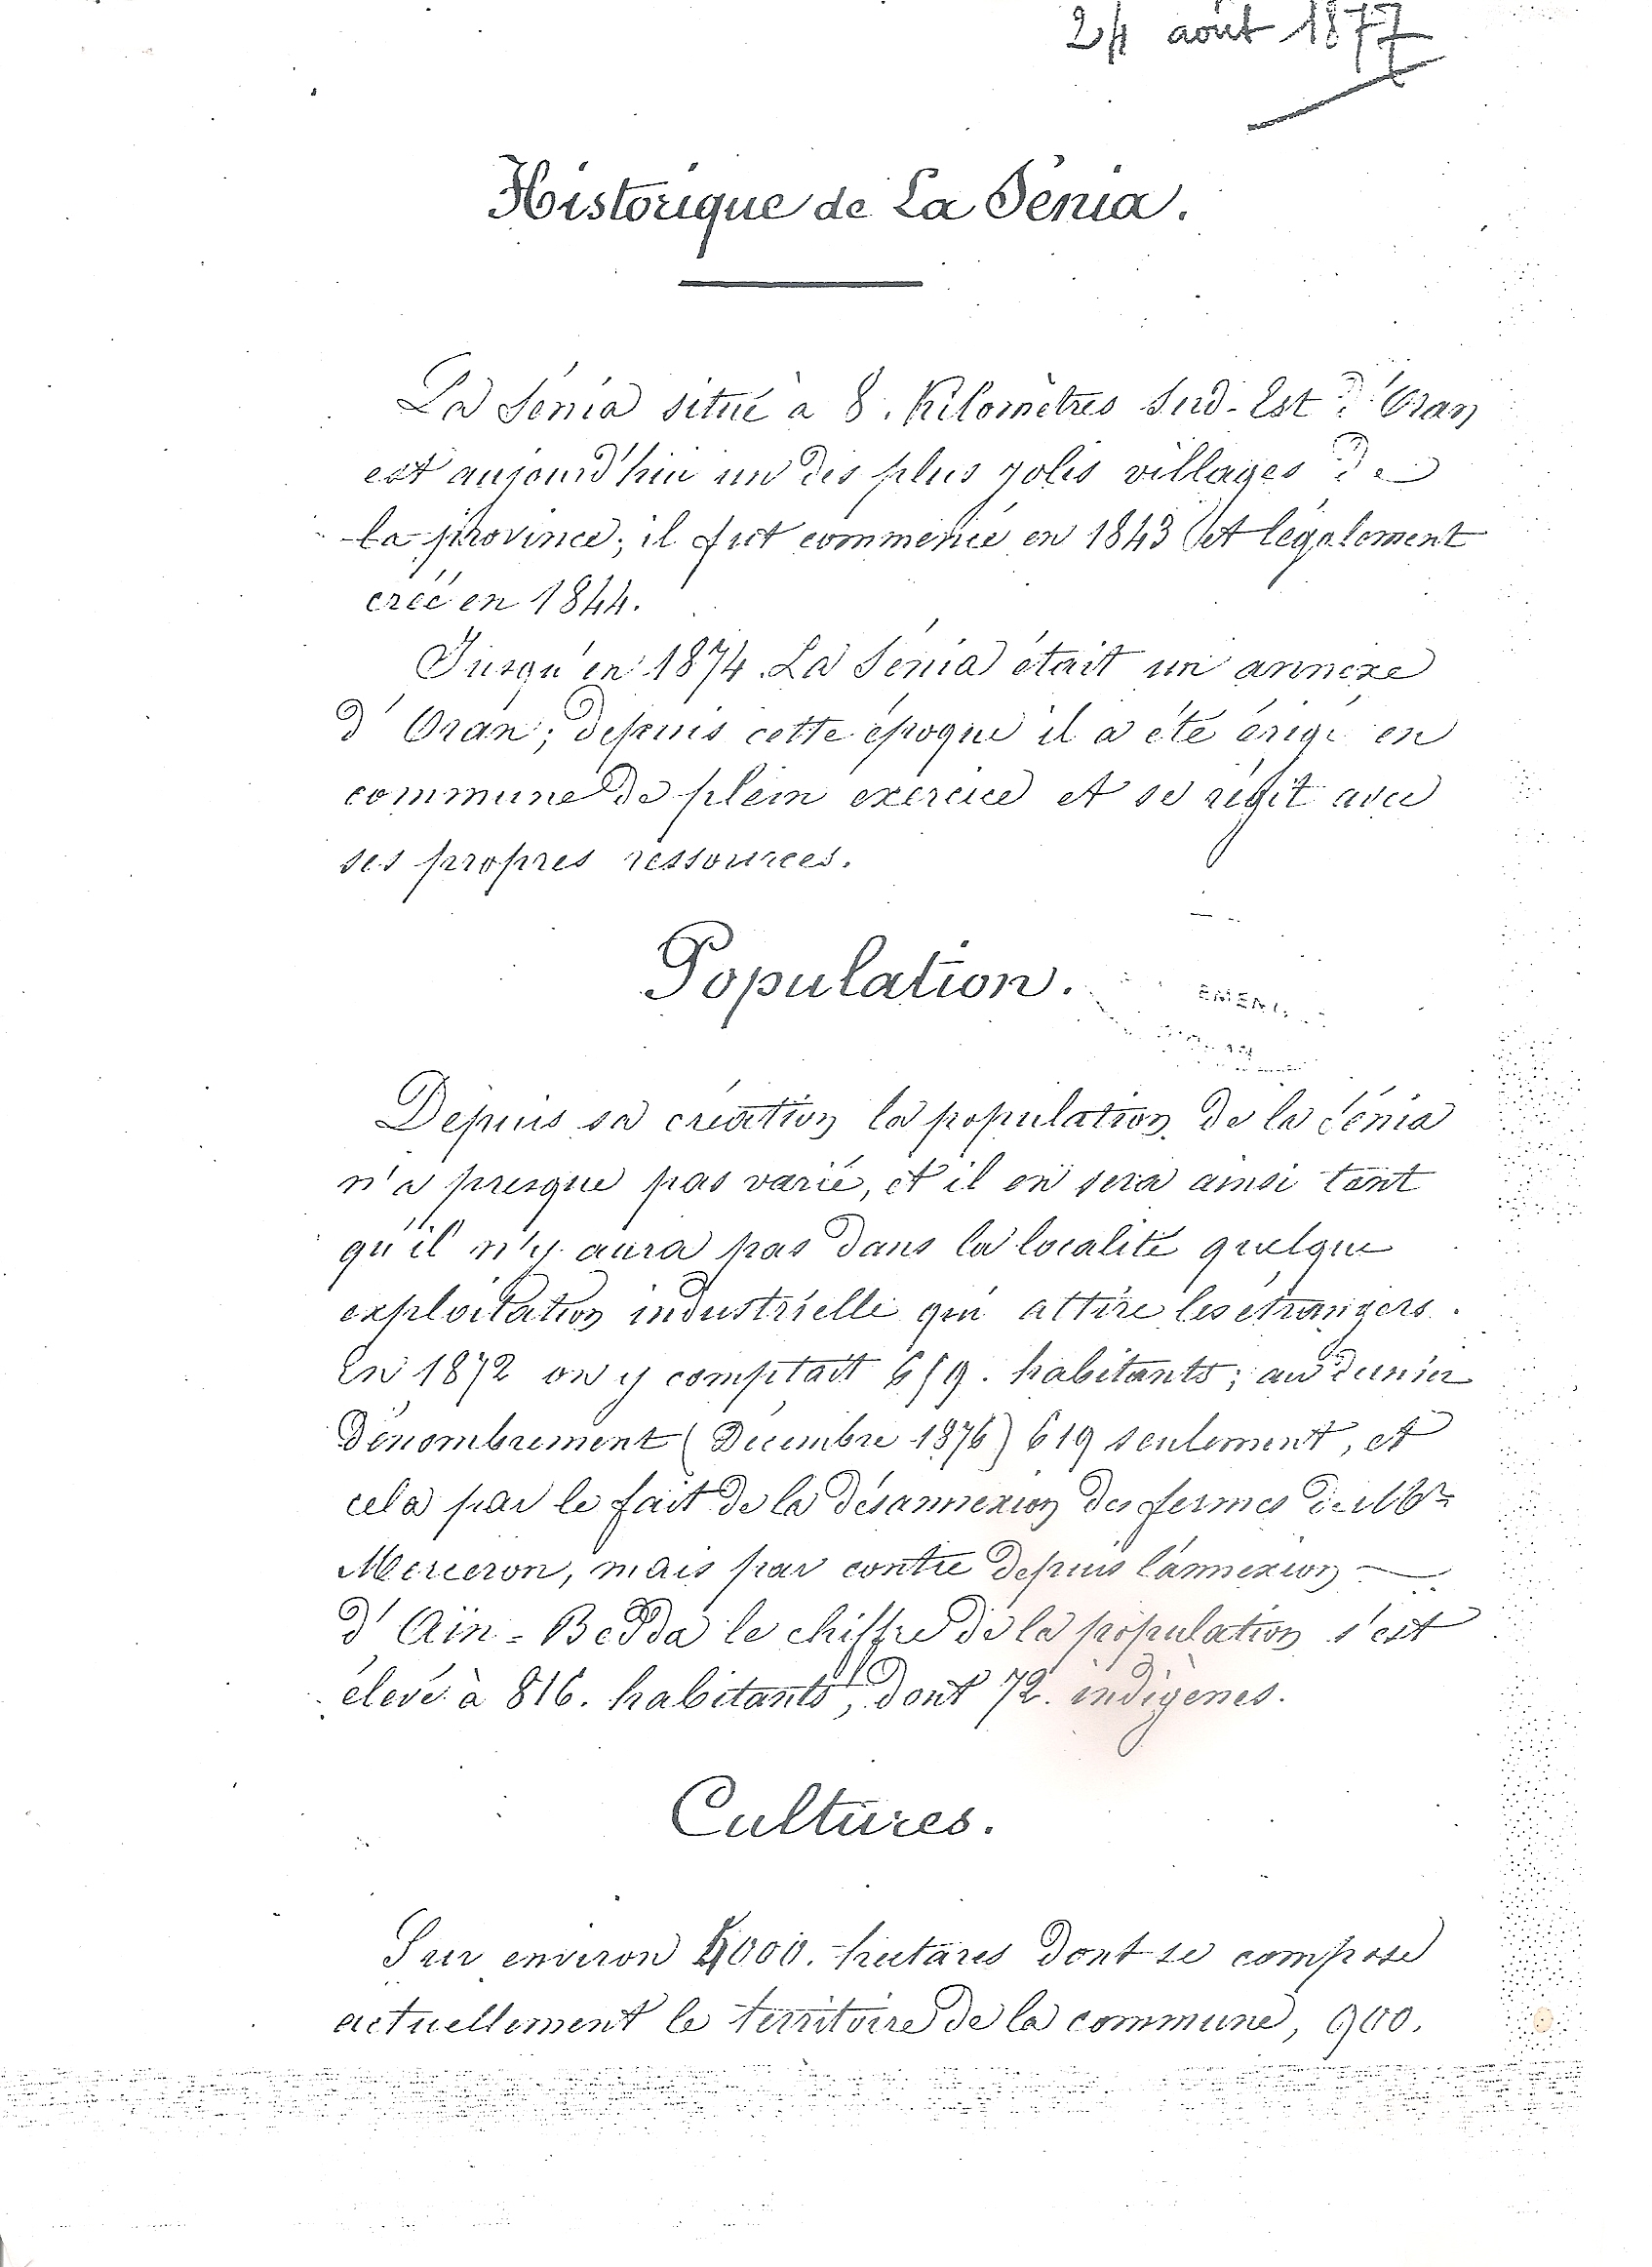 24 août 1877
Historique de La Sénia.
La Sénia situé à 8. Kilomètres Sud-Est d'Oran
est aujourd'hui un des plus jolis villages de
la province; il fut commencé en 1843 et légalement
créé en 1844.
Jusqu'en 1874 La Sénia était un annexe
d'Oran; depuis cette époque il a été érigé en
commune de plein exercice et se régit avec
ses propres ressources.
Population.
Depuis sa création la population de la Sénia
n'a presque pas varié, et il en sera ainsi tant
qu'il n'y aura pas dans la localité quelque
exploitation industrielle qui attire les étrangers.
En 1872 on y comptait habitants; au dernier
dénombrement (Décembre 1876) 619 seulement, et
cela par le fait de la désannexion des fermes de Mr
Merceron, mais par contre depuis l'annexion
d'Aïn-Bedda le chiffre de la population s'est
élevé à 816. habitants, dont 72. indigènes.
Cultures.
Sur environ hectares dont se compose
actuellement le territoire de la commune, 900.